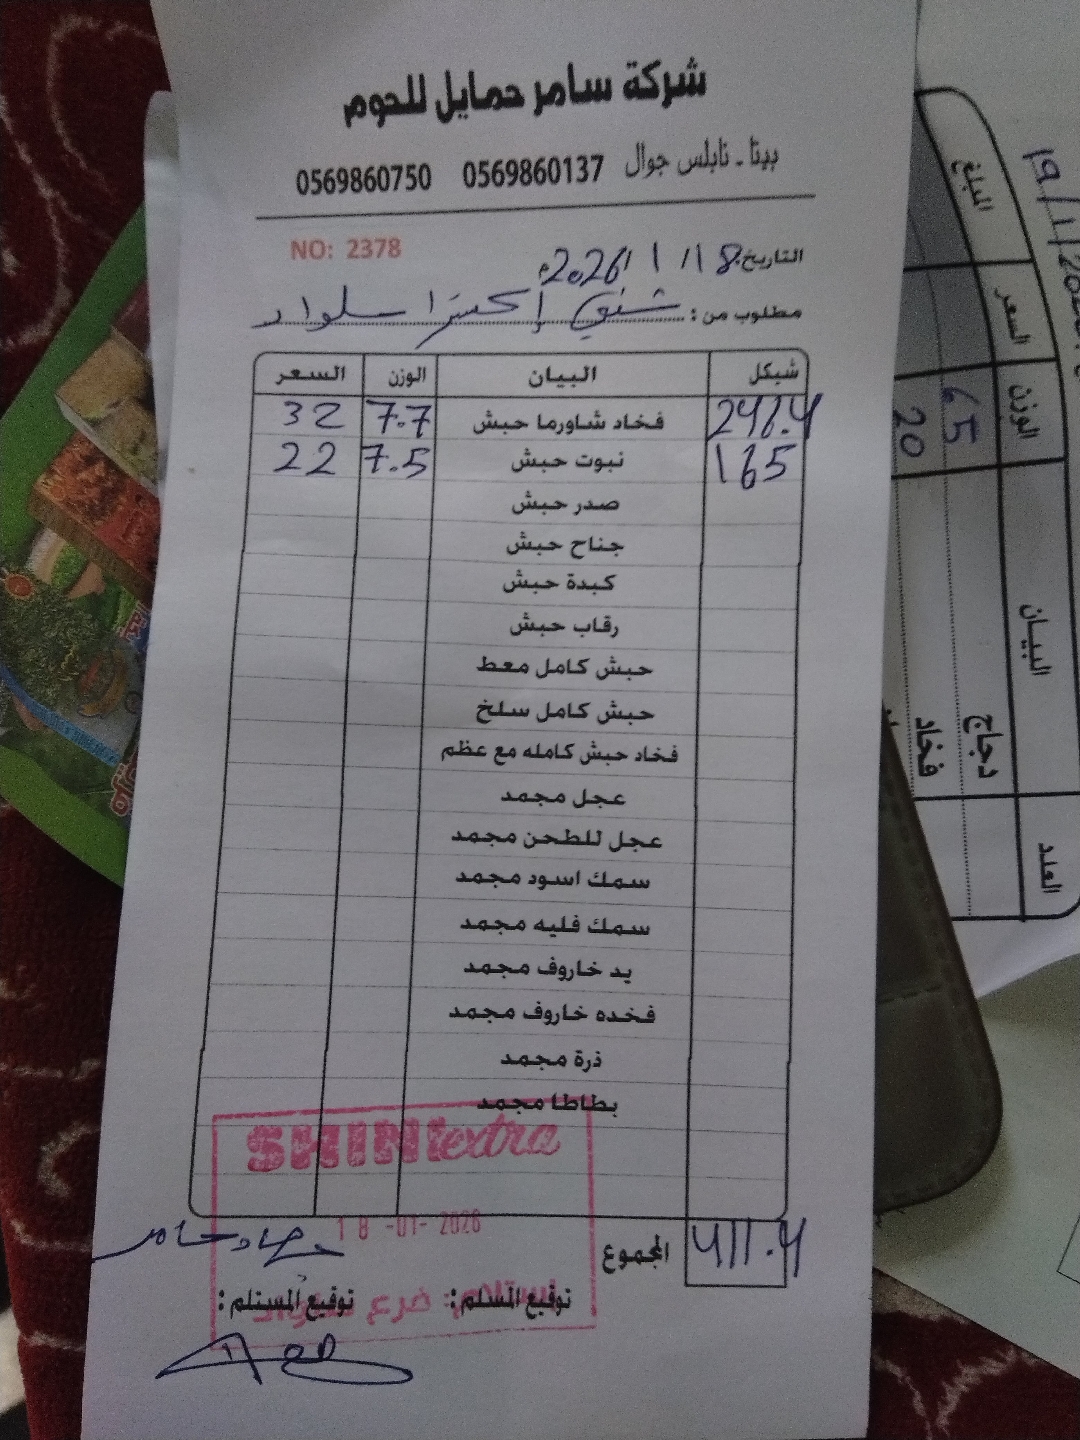 شركة سامر حمايل للحوم
بيتا - نابلس جوال 0569860137 0569860750
NO: 2378
التاريخ: 18 / 1 / 2026م
مطلوب من: شني إكسترا سلواد
شيكل البيان الوزن السعر
246.4 فخاد شاورما حبش 7.7 32
165 نبوت حبش 7.5 22
صدر حبش
جناح حبش
كبدة حبش
رقاب حبش
حبش كامل معط
حبش كامل سلخ
فخاد حبش كامله مع عظم
عجل مجمد
عجل للطحن مجمد
سمك اسود مجمد
سمك فليه مجمد
يد خاروف مجمد
فخده خاروف مجمد
ذرة مجمد
بطاطا مجمد
SHINI extra
18 -01- 2026
المجموع 411.4
توقيع المسلم: توقيع المستلم:
استلام فرع سلواد
19/1/20
المبلغ
السعر
الوزن
65
20
البيان
دجاج
فخاد
العدد